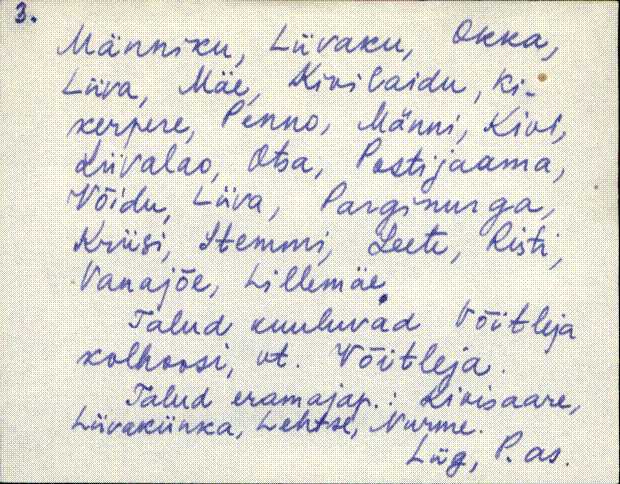 3.
Männiku, Liivaku, Okka,
Liiva, Mäe, Kivilaidu, Ki-
kerpere, Penno, Männi, Kivi,
Liivalao, Otsa, Postijaama,
Võidu, Liiva, Parginurga,
Kriisi, Stemmi, Leete, Risti,
Vanajõe, Lillemäe.
Talud kuuluvad Võitleja
kolhoosi, vt. Võitleja.
Talud eramajap.: Kivisaare,
Liivakünka, Lehtse, Nurme.
Liig, P. as.